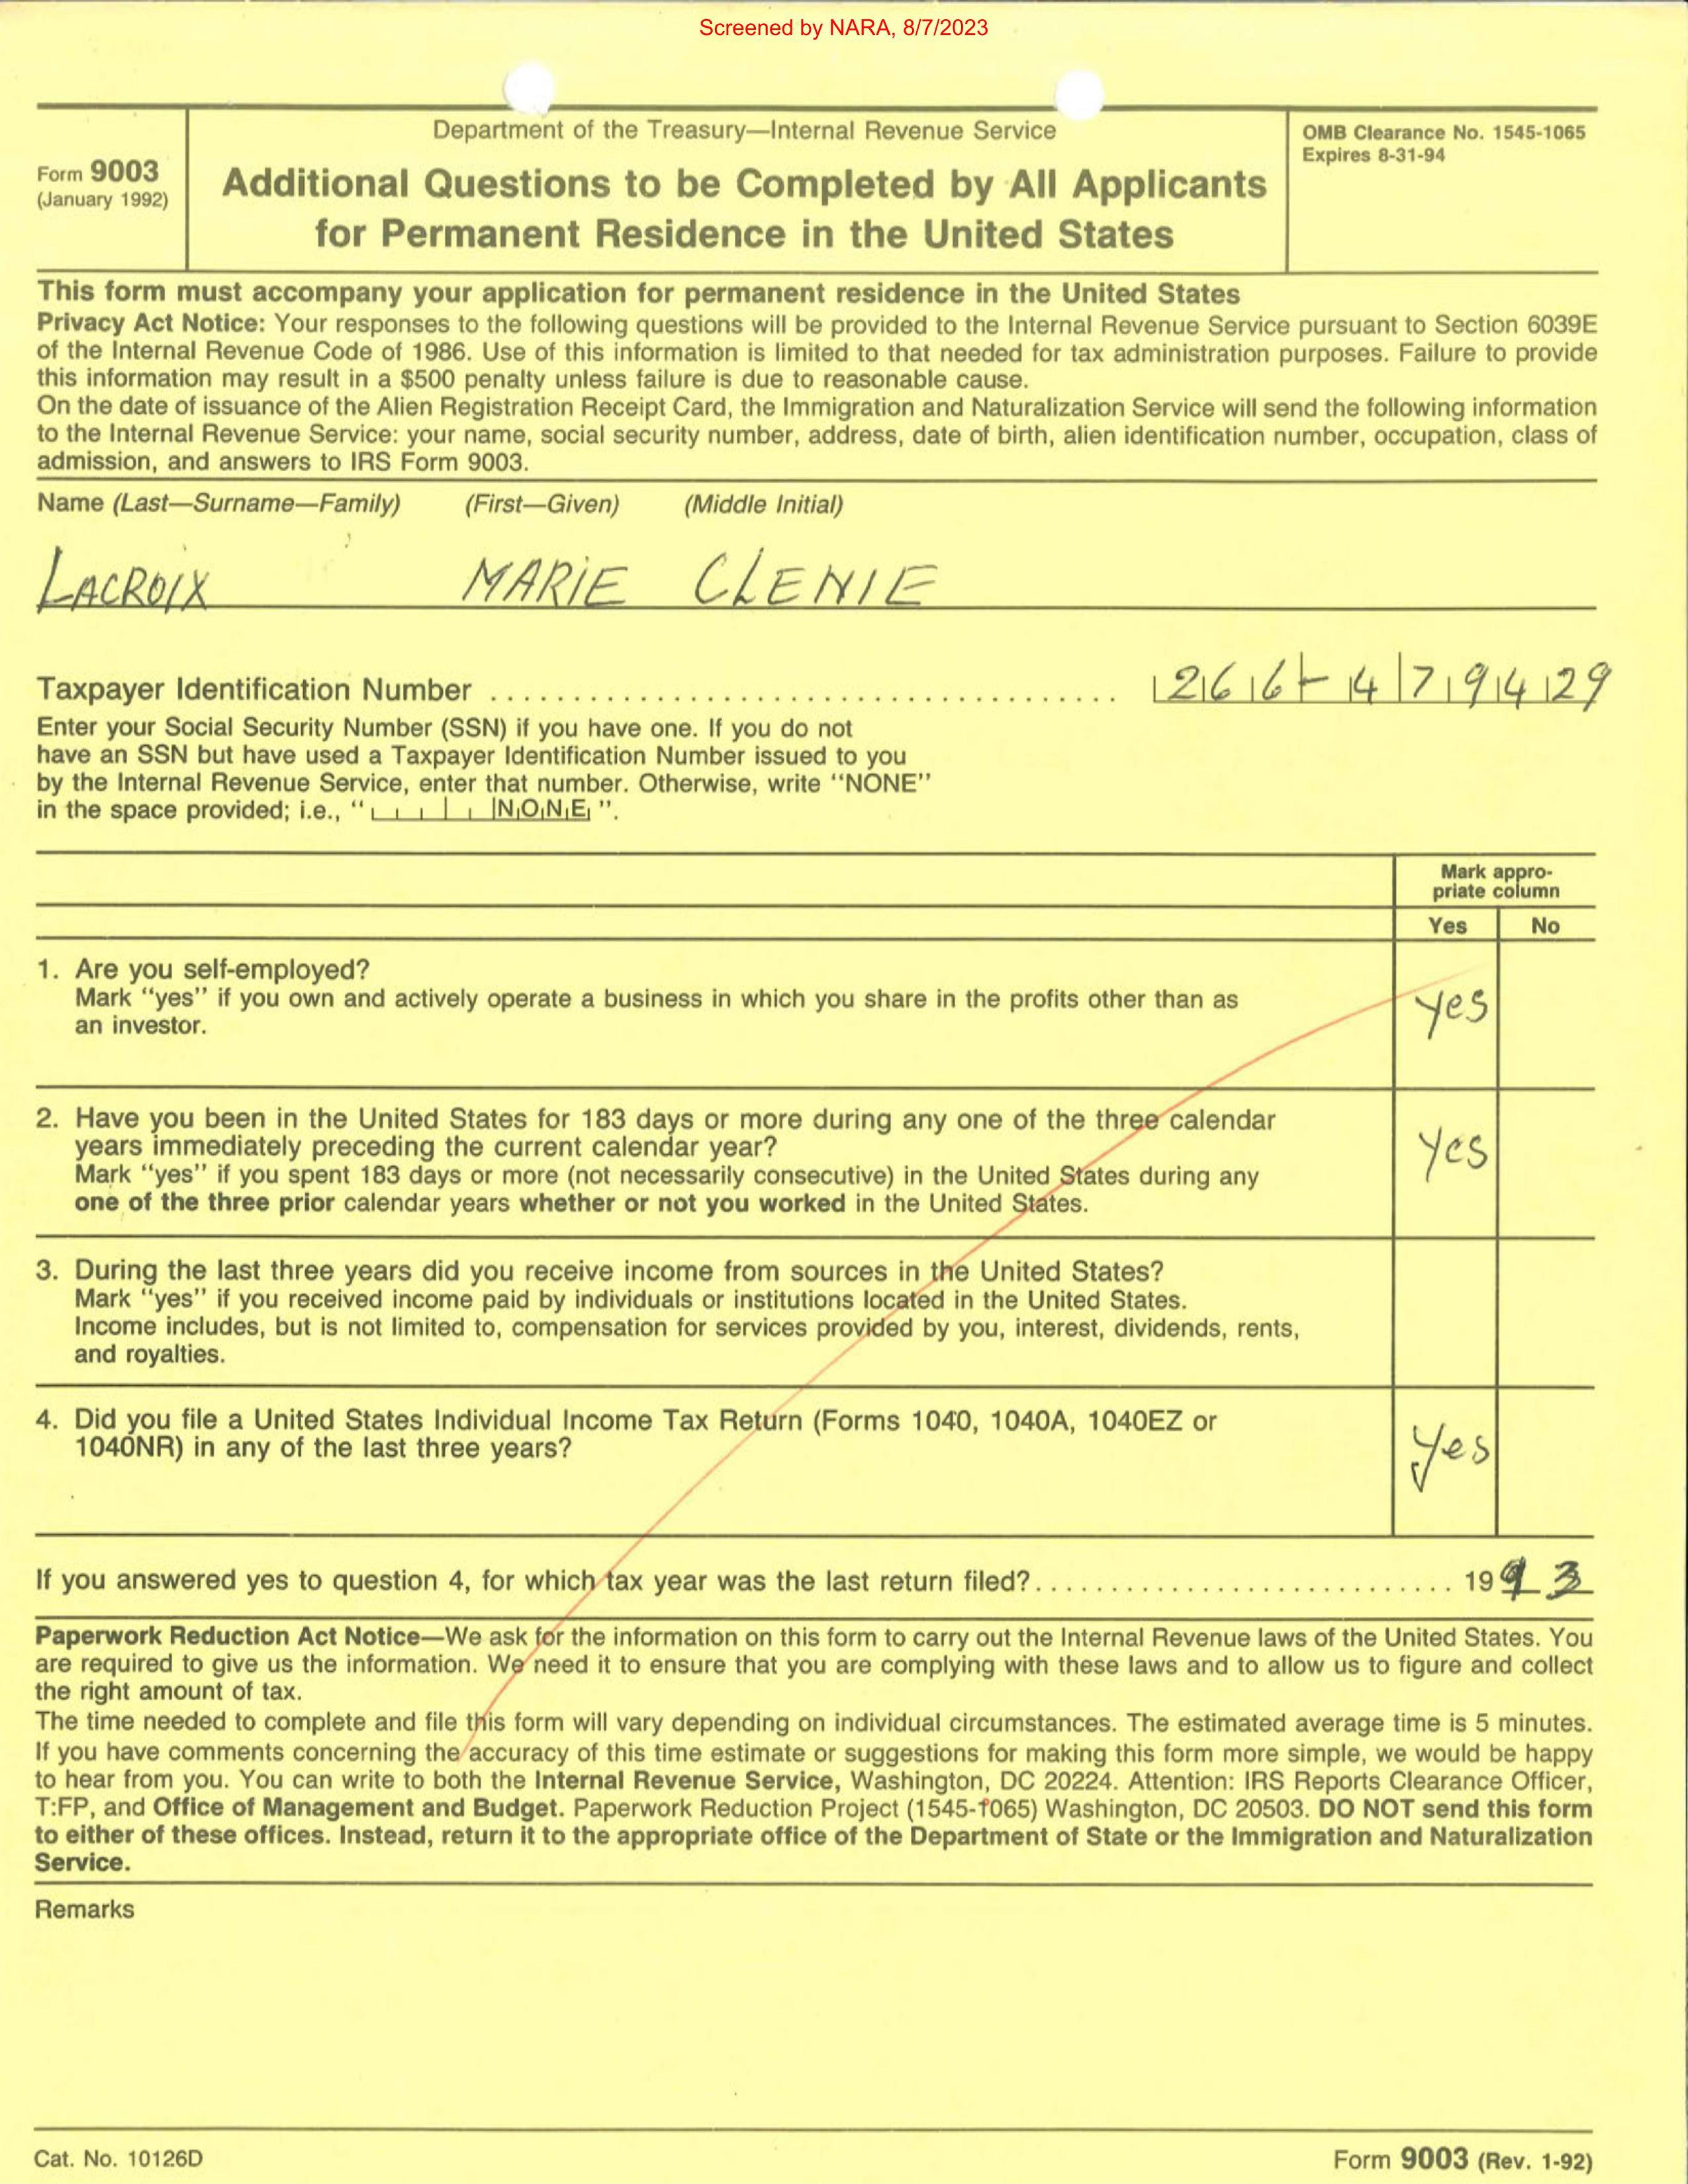 Screened by NARA, 8/7/2023
Form 9003
(January 1992)
Department of the Treasury—Internal Revenue Service
Additional Questions to be Completed by All Applicants
for Permanent Residence in the United States
OMB Clearance No. 1545-1065
Expires 8-31-94
This form must accompany your application for permanent residence in the United States
Privacy Act Notice: Your responses to the following questions will be provided to the Internal Revenue Service pursuant to Section 6039E
of the Internal Revenue Code of 1986. Use of this information is limited to that needed for tax administration purposes. Failure to provide
this information may result in a $500 penalty unless failure is due to reasonable cause.
On the date of issuance of the Alien Registration Receipt Card, the Immigration and Naturalization Service will send the following information
to the Internal Revenue Service: your name, social security number, address, date of birth, alien identification number, occupation, class of
admission, and answers to IRS Form 9003.
Name (Last—Surname—Family) (First—Given) (Middle Initial)
LACROIX MARIE CLENIE
Taxpayer Identification Number 266-479429
Enter your Social Security Number (SSN) if you have one. If you do not
have an SSN but have used a Taxpayer Identification Number issued to you
by the Internal Revenue Service, enter that number. Otherwise, write "NONE"
in the space provided; i.e., " NONE ".
Mark appro-
priate column
Yes No
1. Are you self-employed?
Mark "yes" if you own and actively operate a business in which you share in the profits other than as
an investor.
yes
2. Have you been in the United States for 183 days or more during any one of the three calendar
years immediately preceding the current calendar year?
Mark "yes" if you spent 183 days or more (not necessarily consecutive) in the United States during any
one of the three prior calendar years whether or not you worked in the United States.
yes
3. During the last three years did you receive income from sources in the United States?
Mark "yes" if you received income paid by individuals or institutions located in the United States.
Income includes, but is not limited to, compensation for services provided by you, interest, dividends, rents,
and royalties.
4. Did you file a United States Individual Income Tax Return (Forms 1040, 1040A, 1040EZ or
1040NR) in any of the last three years?
yes
If you answered yes to question 4, for which tax year was the last return filed? 1993
Paperwork Reduction Act Notice—We ask for the information on this form to carry out the Internal Revenue laws of the United States. You
are required to give us the information. We need it to ensure that you are complying with these laws and to allow us to figure and collect
the right amount of tax.
The time needed to complete and file this form will vary depending on individual circumstances. The estimated average time is 5 minutes.
If you have comments concerning the accuracy of this time estimate or suggestions for making this form more simple, we would be happy
to hear from you. You can write to both the Internal Revenue Service, Washington, DC 20224. Attention: IRS Reports Clearance Officer,
T:FP, and Office of Management and Budget. Paperwork Reduction Project (1545-1065) Washington, DC 20503. DO NOT send this form
to either of these offices. Instead, return it to the appropriate office of the Department of State or the Immigration and Naturalization
Service.
Remarks
Cat. No. 10126D
Form 9003 (Rev. 1-92)